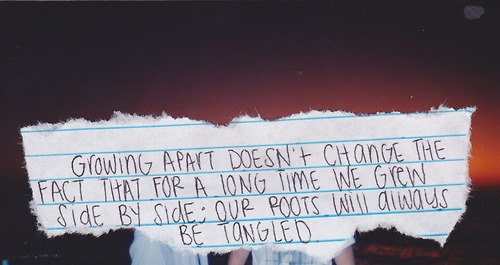 GROWING APART DOESN't CHANGE THE
FACT THAT FOR A LONG TIME WE GREW
SIDE BY SIDE; OUR ROOTS Will always
BE TANGLED.